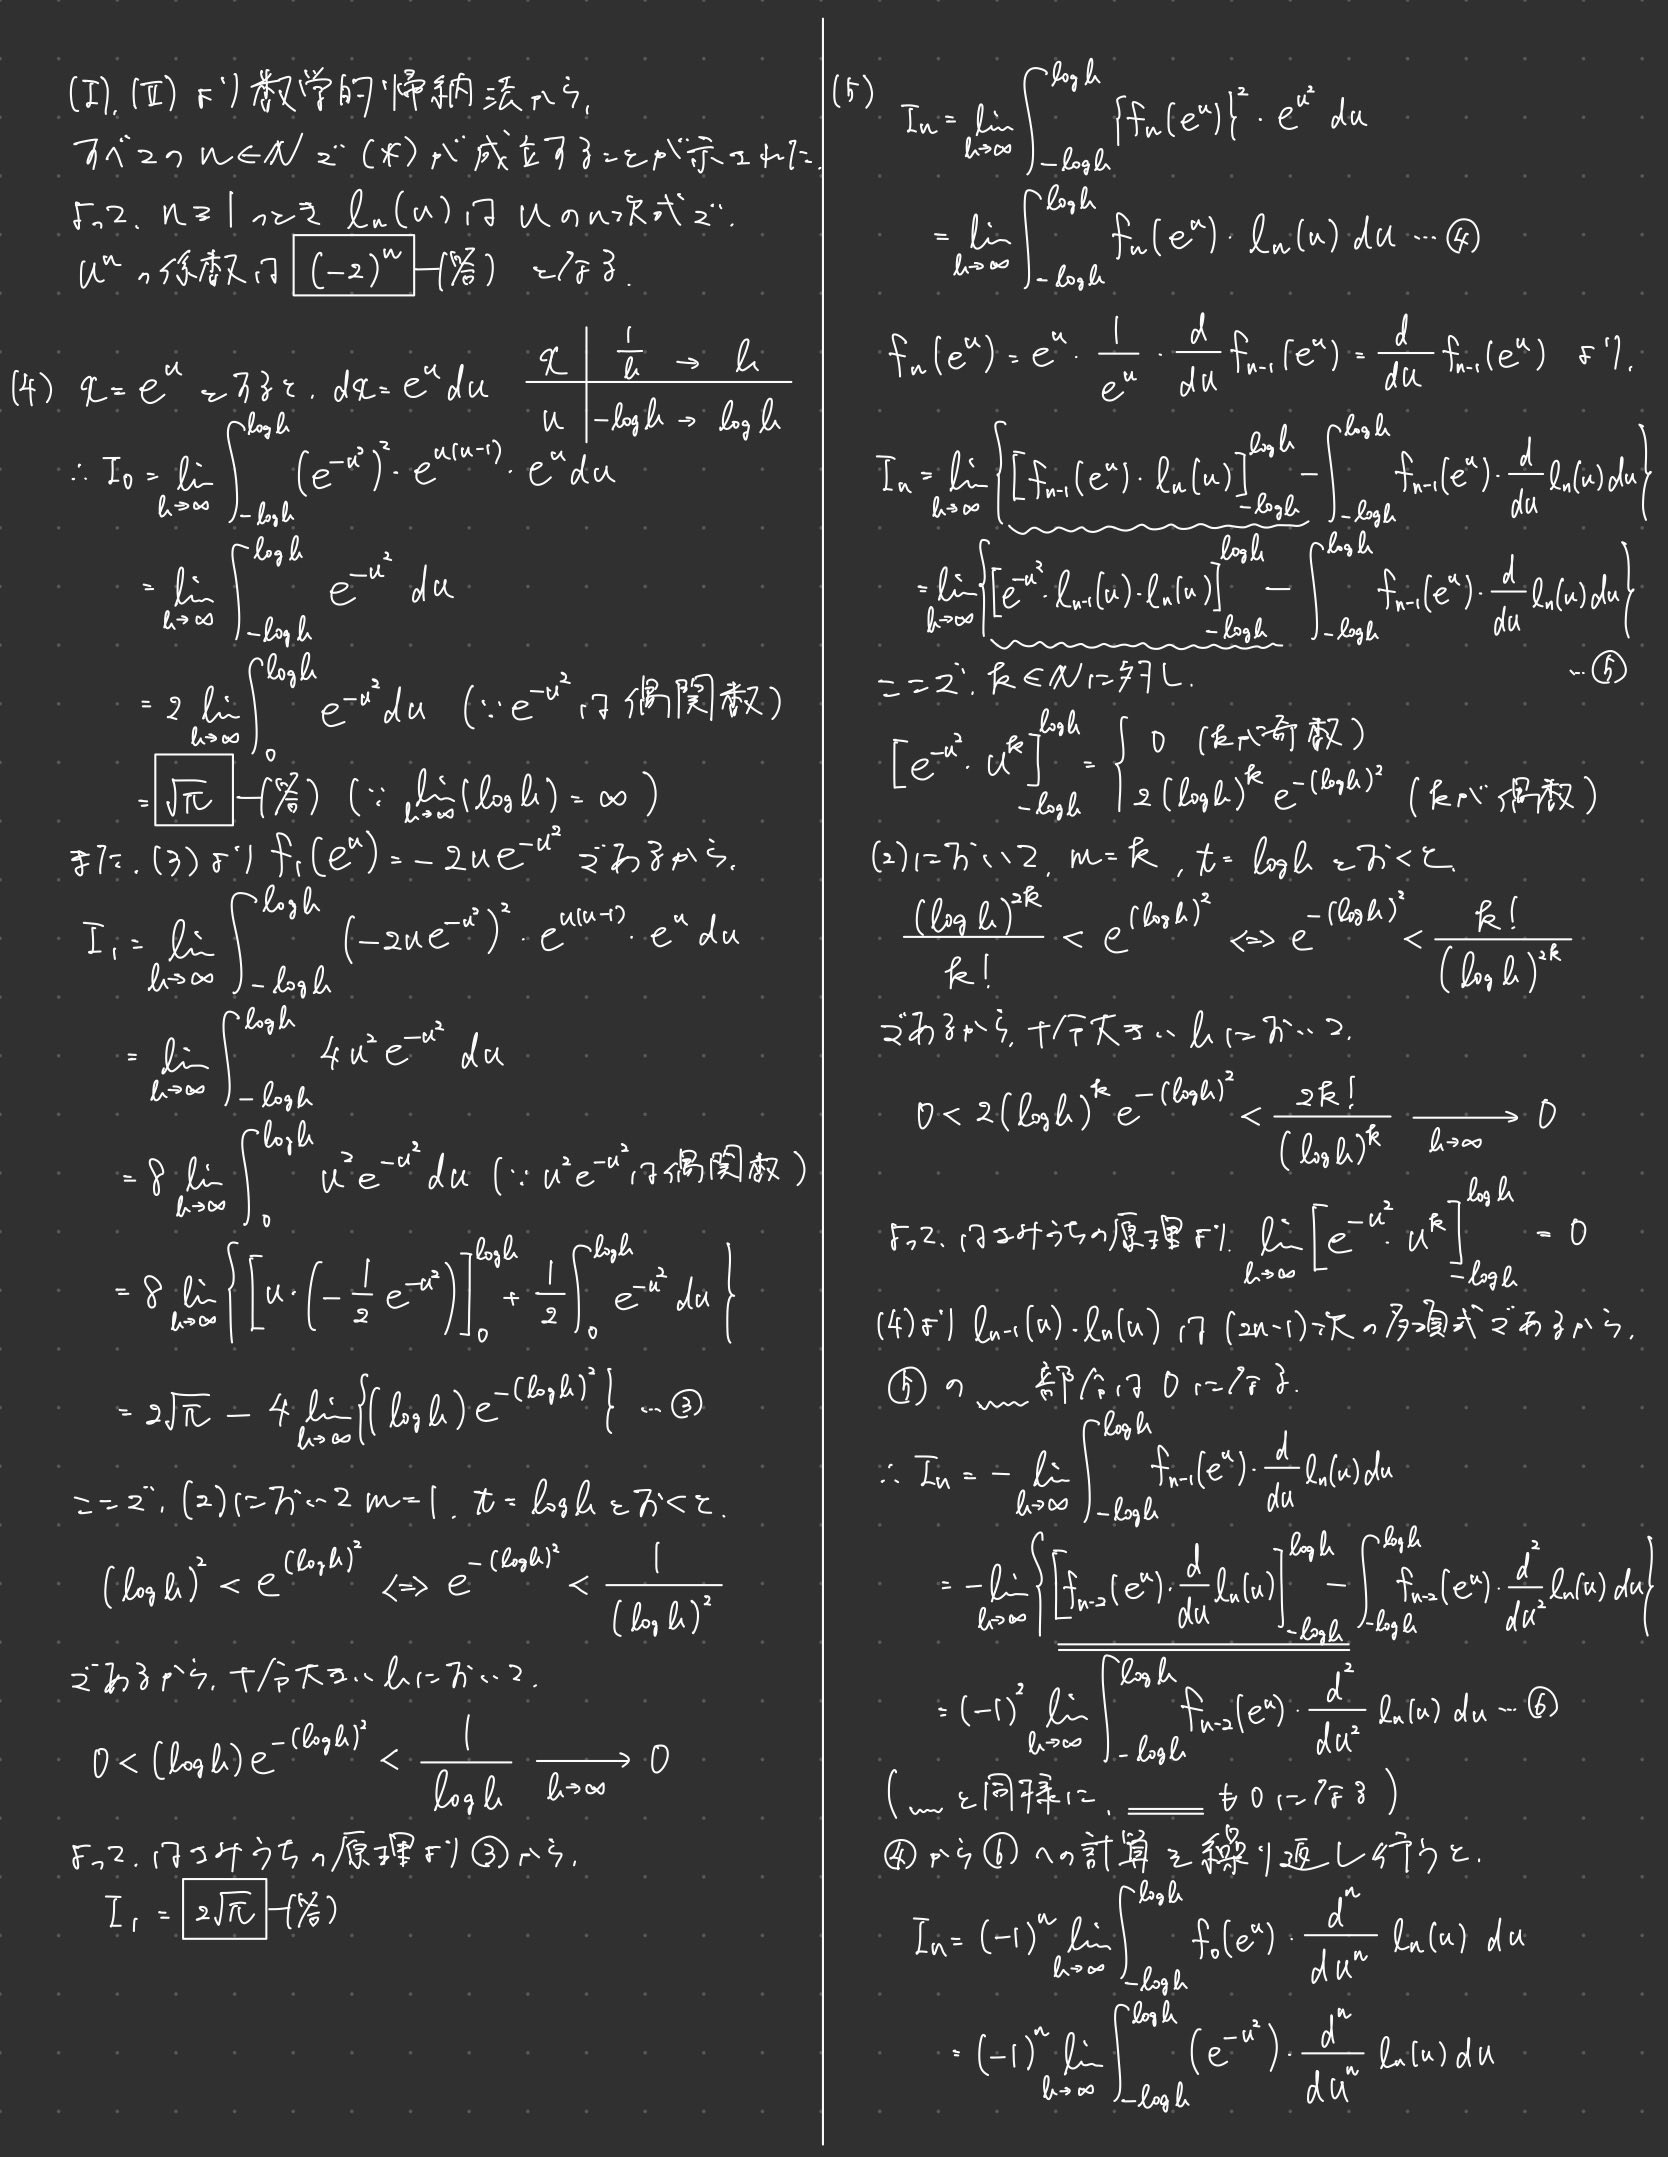 (I), (II) より 数学的帰納法から,
すべての n∈N で (*) が成立することが示された.
よって, n≧1 のとき lₙ(u) は u の n次式で,
uⁿ の係数は (-2)ⁿ —(答) となる.
(4) x = e^u とすると, dx = e^u du
x | 1/h → h
u | -log h → log h
∴ I₀ = lim_{h→∞} ∫_{-log h}^{log h} (e^{-u²})² · e^{u(u-1)} · e^u du
= lim_{h→∞} ∫_{-log h}^{log h} e^{-u²} du
= 2 lim_{h→∞} ∫_0^{log h} e^{-u²} du (∵ e^{-u²} は 偶関数)
= √π —(答) (∵ lim_{h→∞} (log h) = ∞)
また, (3) より f₁(e^u) = -2u e^{-u²} であるから,
I₁ = lim_{h→∞} ∫_{-log h}^{log h} (-2u e^{-u²})² · e^{u(u-1)} · e^u du
= lim_{h→∞} ∫_{-log h}^{log h} 4u² e^{-u²} du
= 8 lim_{h→∞} ∫_0^{log h} u² e^{-u²} du (∵ u² e^{-u²} は 偶関数)
= 8 lim_{h→∞} { [u · (-1/2 e^{-u²})]_0^{log h} + 1/2 ∫_0^{log h} e^{-u²} du }
= 2√π - 4 lim_{h→∞} {(log h) e^{-(log h)²}} … ③
ここで, (2) において m = 1, t = log h とおくと,
(log h)² < e^{(log h)²} <=> e^{-(log h)²} < 1/(log h)²
であるから, 十分大きい h において,
0 < (log h) e^{-(log h)²} < 1/log h →_{h→∞} 0
よって, はさみうちの原理より ③ から,
I₁ = 2√π —(答)
(5) Iₙ = lim_{h→∞} ∫_{-log h}^{log h} {fₙ(e^u)}² · e^{u²} du
= lim_{h→∞} ∫_{-log h}^{log h} fₙ(e^u) · lₙ(u) du … ④
fₙ(e^u) = e^u · 1/e^u · d/du f_{n-1}(e^u) = d/du f_{n-1}(e^u) より,
Iₙ = lim_{h→∞} { [f_{n-1}(e^u) · lₙ(u)]_{-log h}^{log h} - ∫_{-log h}^{log h} f_{n-1}(e^u) · d/du lₙ(u) du }
= lim_{h→∞} { [e^{-u²} · l_{n-1}(u) · lₙ(u)]_{-log h}^{log h} - ∫_{-log h}^{log h} f_{n-1}(e^u) · d/du lₙ(u) du }
… ⑤
ここで, k∈N に対し,
[e^{-u²} · u^k]_{-log h}^{log h} = { 0 (k が奇数)
2(log h)^k e^{-(log h)²} (k が 偶数)
(2) において, m = k, t = log h とおくと,
(log h)^{2k}/k! < e^{(log h)²} <=> e^{-(log h)²} < k!/(log h)^{2k}
であるから, 十分大きい h において,
0 < 2(log h)^k e^{-(log h)²} < 2k!/(log h)^k →_{h→∞} 0
よって, はさみうちの原理より, lim_{h→∞} [e^{-u²} · u^k]_{-log h}^{log h} = 0
(4) より l_{n-1}(u) · lₙ(u) は (2n-1) 次 の 多項式であるから,
⑤ の 〰 部分は 0 になる.
∴ Iₙ = - lim_{h→∞} ∫_{-log h}^{log h} f_{n-1}(e^u) · d/du lₙ(u) du
= - lim_{h→∞} { [f_{n-2}(e^u) · d/du lₙ(u)]_{-log h}^{log h} - ∫_{-log h}^{log h} f_{n-2}(e^u) · d²/du² lₙ(u) du }
= (-1)² lim_{h→∞} ∫_{-log h}^{log h} f_{n-2}(e^u) · d²/du² lₙ(u) du … ⑥
(〰 と同様に, ══ も 0 になる)
④ から ⑥ への計算を繰り返し行うと,
Iₙ = (-1)ⁿ lim_{h→∞} ∫_{-log h}^{log h} f₀(e^u) · dⁿ/duⁿ lₙ(u) du
= (-1)ⁿ lim_{h→∞} ∫_{-log h}^{log h} (e^{-u²}) · dⁿ/duⁿ lₙ(u) du